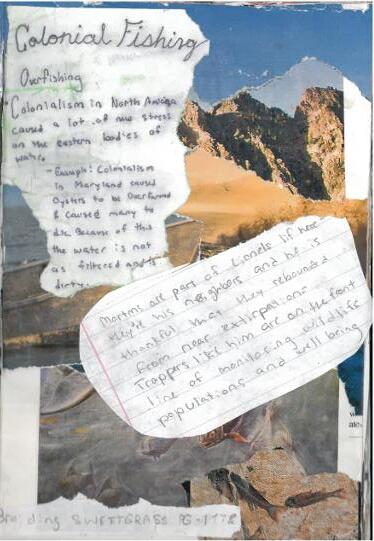 Colonial Fishing
Overfishing
Colonialism in North America
caused a lot of new stress
on the eastern bodies of
water.
- Example: Colonialism
in Maryland caused
Oysters to be Overfarmed
& caused many to
die. Because of this
the water is not
as filtered and is
dirty.
Martins are part of Lionels lif here
they're his neighbors and he is
thankful that they rebounded
from near extirpation.
Trappers like him are on the front
line of monitoring wildlife
populations and well being
Braiding SWEETGRASS PG-